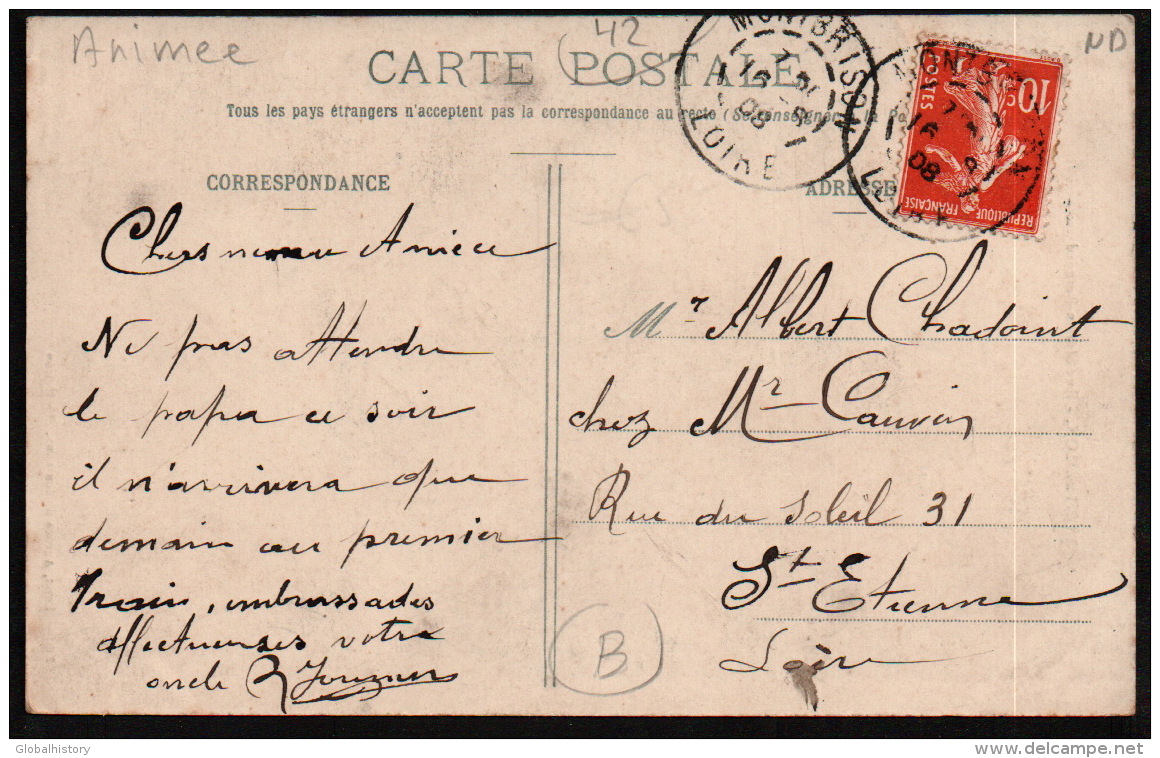 Animee
42
ND
CARTE POSTALE
Tous les pays étrangers n'acceptent pas la correspondance au recto (Se renseigner à la
CORRESPONDANCE
ADRESSE
MONTBRISON
16
08
LOIRE
10c
POSTES
REPUBLIQUE FRANÇAISE
Chers neveu
Ne pas attendre
le papa ce soir
il n'arrivera que
demain au premier
Train, embrassades
affectueuses votre
oncle
Mr Albert Chadoint
chez Mr Cauvin
Rue du Soleil 31
St Etienne
Loire
B
Globalhistory
delcampe.net